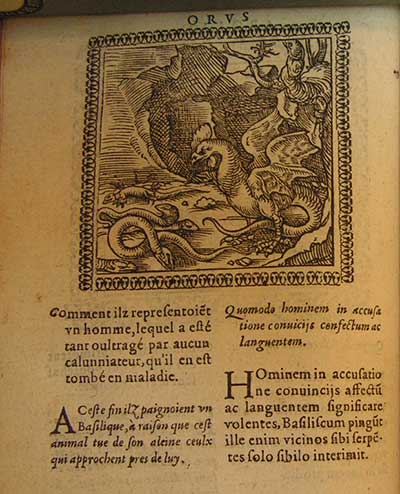 ORVS
Comment ilz representoiẽt
vn homme, lequel a esté
tant oultragé par aucun
calunniateur, qu'il en est
tombé en maladie.
A Ceste fin ilz paignoient vn
Basilique, a raison que cest
animal tue de son aleine ceulx
qui approchent pres de luy.
Quomodo hominem in accusa
tione conuicijs confectum ac
languentem.
HOminem in accusatio
ne conuincijs affectũ
ac languentem significare
volentes, Basiliscum pingũt
ille enim vicinos sibi serpẽ-
tes solo sibilo interimit.